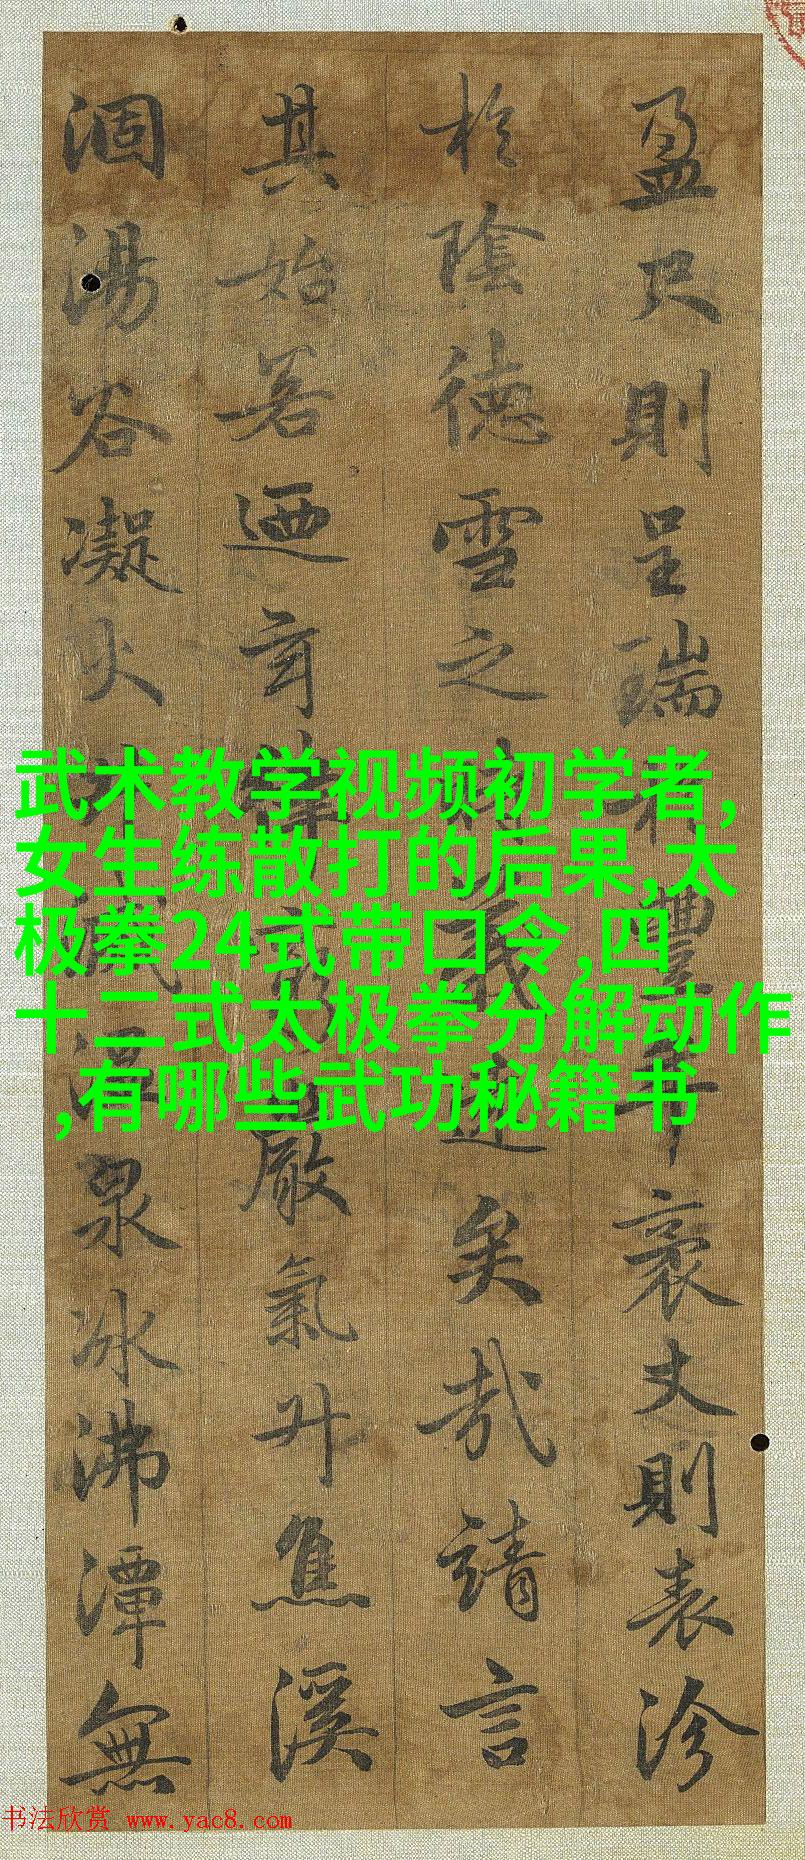 盈尺則呈瑞於豐年袤丈則表沴
於陰德雪之時義遠矣哉請言
其始若迺玄律窮嚴氣升焦溪
涸湯谷凝火井滅溫泉冰沸潭無
武术教学视频初学者,
女生练散打的后果,太
极拳24式带口令,四
十二式太极拳分解动作
,有哪些武功秘籍书
书法欣赏 www.yac8.com